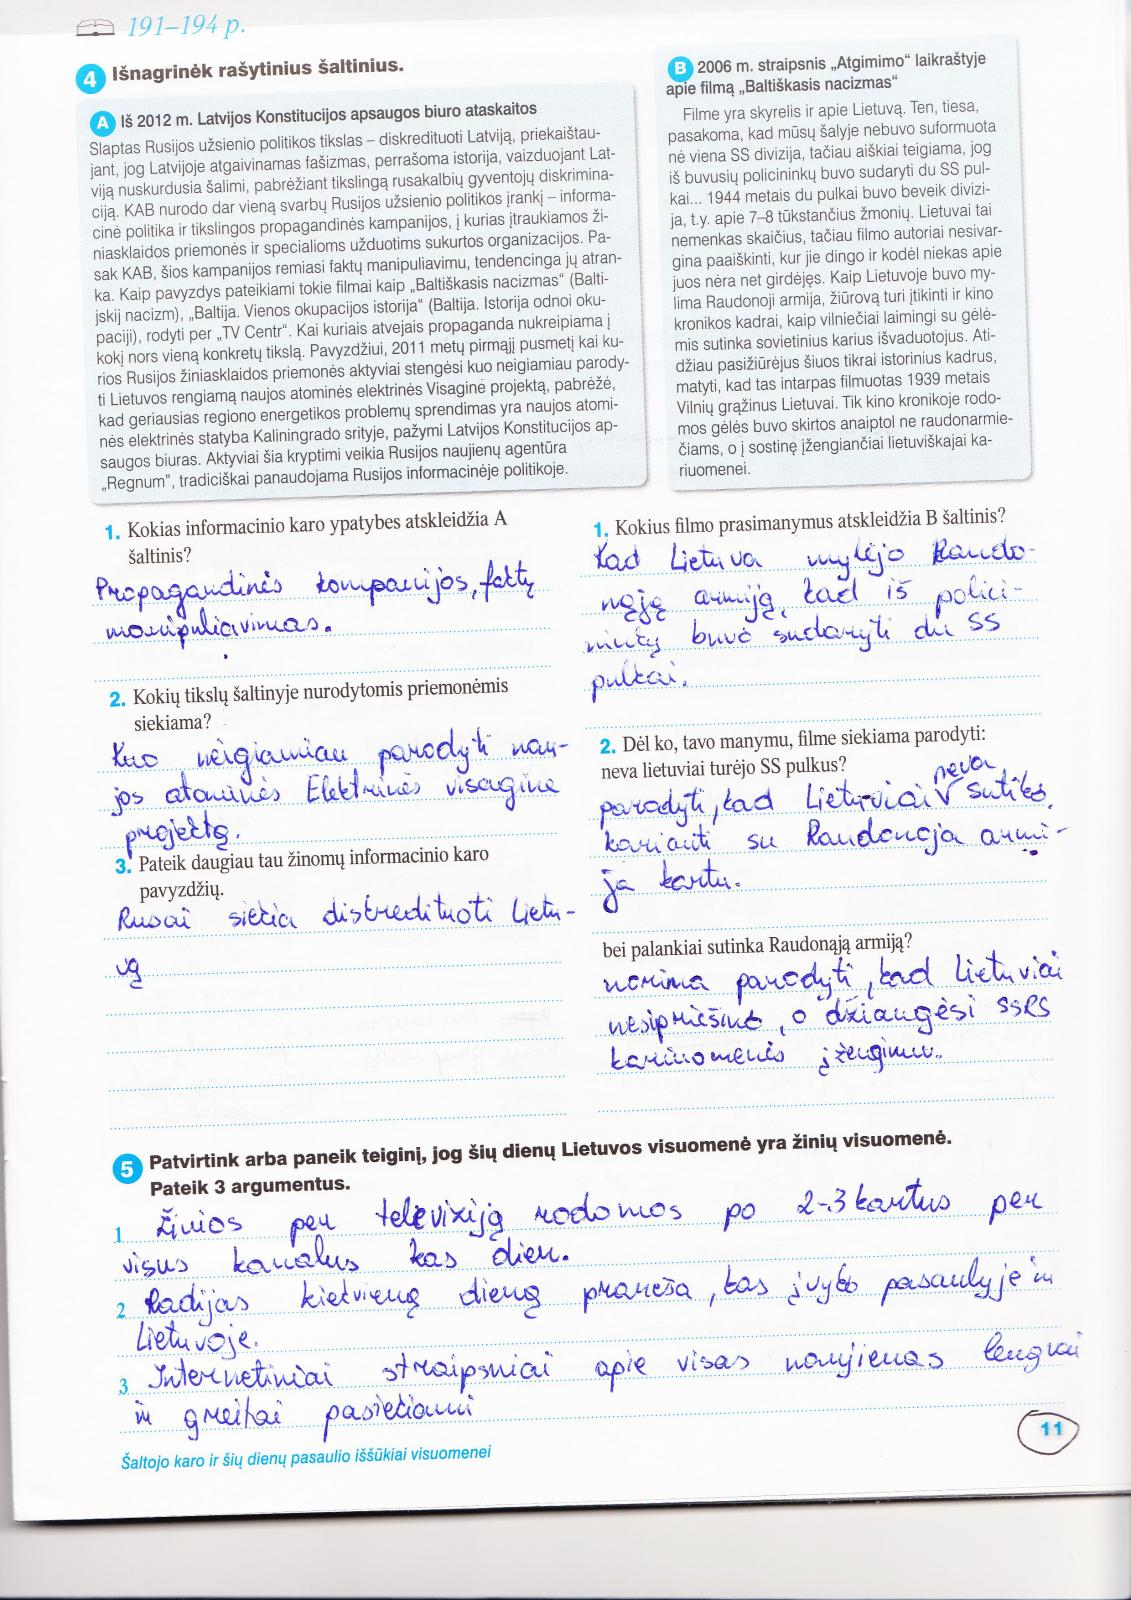 191–194 p.
4 Išnagrinėk rašytinius šaltinius.
A Iš 2012 m. Latvijos Konstitucijos apsaugos biuro ataskaitos
Slaptas Rusijos užsienio politikos tikslas – diskredituoti Latviją, priekaištau-
jant, jog Latvijoje atgaivinamas fašizmas, perrašoma istorija, vaizduojant Lat-
viją nuskurdusia šalimi, pabrėžiant tikslingą rusakalbių gyventojų diskrimina-
ciją. KAB nurodo dar vieną svarbų Rusijos užsienio politikos įrankį – informa-
cinė politika ir tikslingos propagandinės kampanijos, į kurias įtraukiamos ži-
niasklaidos priemonės ir specialioms užduotims sukurtos organizacijos. Pa-
sak KAB, šios kampanijos remiasi faktų manipuliavimu, tendencinga jų atran-
ka. Kaip pavyzdys pateikiami tokie filmai kaip „Baltiškasis nacizmas“ (Balti-
jskij nacizm), „Baltija. Vienos okupacijos istorija“ (Baltija. Istorija odnoi oku-
paciji), rodyti per „TV Centr“. Kai kuriais atvejais propaganda nukreipiama į
kokį nors vieną konkretų tikslą. Pavyzdžiui, 2011 metų pirmąjį pusmetį kai ku-
rios Rusijos žiniasklaidos priemonės aktyviai stengėsi kuo neigiamiau parody-
ti Lietuvos rengiamą naujos atominės elektrinės Visaginė projektą, pabrėžė,
kad geriausias regiono energetikos problemų sprendimas yra naujos atomi-
nės elektrinės statyba Kaliningrado srityje, pažymi Latvijos Konstitucijos ap-
saugos biuras. Aktyviai šia kryptimi veikia Rusijos naujienų agentūra
„Regnum”, tradiciškai panaudojama Rusijos informacinėje politikoje.
B 2006 m. straipsnis „Atgimimo“ laikraštyje
apie filmą „Baltiškasis nacizmas“
Filme yra skyrelis ir apie Lietuvą. Ten, tiesa,
pasakoma, kad mūsų šalyje nebuvo suformuota
nė viena SS divizija, tačiau aiškiai teigiama, jog
iš buvusių policininkų buvo sudaryti du SS pul-
kai... 1944 metais du pulkai buvo beveik divizi-
ja, t.y. apie 7–8 tūkstančius žmonių. Lietuvai tai
nemenkas skaičius, tačiau filmo autoriai nesivar-
gina paaiškinti, kur jie dingo ir kodėl niekas apie
juos nėra net girdėjęs. Kaip Lietuvoje buvo my-
lima Raudonoji armija, žiūrovą turi įtikinti ir kino
kronikos kadrai, kaip vilniečiai laimingi su gėlė-
mis sutinka sovietinius karius išvaduotojus. Ati-
džiau pasižiūrėjus šiuos tikrai istorinius kadrus,
matyti, kad tas intarpas filmuotas 1939 metais
Vilnių grąžinus Lietuvai. Tik kino kronikoje rodo-
mos gėlės buvo skirtos anaiptol ne raudonarmie-
čiams, o į sostinę įžengiančiai lietuviškajai ka-
riuomenei.
1. Kokias informacinio karo ypatybes atskleidžia A
šaltinis?
Propagandinės kompanijos, faktų
manipuliavimas.
2. Kokių tikslų šaltinyje nurodytomis priemonėmis
siekiama?
Kuo neigiamiau parodyti nau-
jos atominės Elektrinės visagine
projektą.
3. Pateik daugiau tau žinomų informacinio karo
pavyzdžių.
Rusai siekia diskredituoti Lietu-
vą
1. Kokius filmo prasimanymus atskleidžia B šaltinis?
Kad Lietuva mylėjo Raudo-
nąją armiją, kad iš polici-
ninkų buvo sudaryti du SS
pulkai.
2. Dėl ko, tavo manymu, filme siekiama parodyti:
neva lietuviai turėjo SS pulkus?
neva
parodyti, kad Lietuviai V sutiko
kariauti su Raudonąja armi-
ja kartu.
bei palankiai sutinka Raudonąją armiją?
norima parodyti, kad Lietuviai
nesipriešino, o džiaugėsi SSRS
kariuomenės įžengimu.
5 Patvirtink arba paneik teiginį, jog šių dienų Lietuvos visuomenė yra žinių visuomenė.
Pateik 3 argumentus.
1 Žinios per televiziją rodomos po 2-3 kartus per
visus kanalus kas dien.
2 Radijas kiekvieną dieną praneša, kas įvyko pasaulyje ir
Lietuvoje.
3 Internetiniai straipsniai apie visas naujienas lengvai
ir greitai pasiekiami
Šaltojo karo ir šių dienų pasaulio iššūkiai visuomenei
11